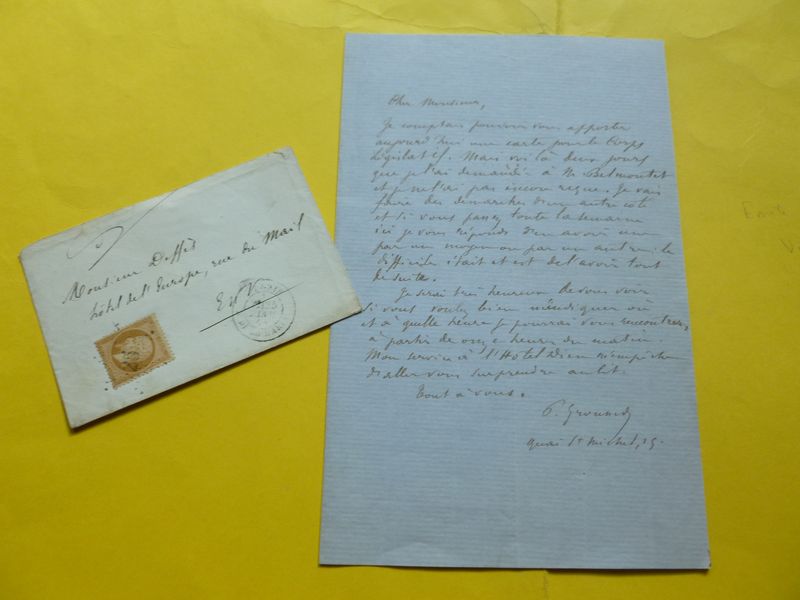 Monsieur Deffès
hôtel de l'Europe, rue du Mail
E.V.
PARIS
Cher Monsieur,
Je comptais pouvoir vous apporter
aujourd'hui une carte pour le Corps
Législatif. Mais voilà deux jours
que je l'ai demandée à Mr Belmontet
et je ne l'ai pas encore reçue. Je vais
faire des démarches d'un autre côté
et si vous passez toute la semaine
ici je vous réponds d'en avoir une
par un moyen ou par un autre; le
difficile était et est de l'avoir tout
de suite.
Je serai très heureux de vous voir
si vous voulez bien m'indiquer où
et à quelle heure je pourrai vous rencontrer,
à partir de onze heures du matin.
Mon service à l'Hôtel Dieu m'empêche
d'aller vous surprendre au lit.
Tout à vous.
P. Grousset
quai St Michel, 25.